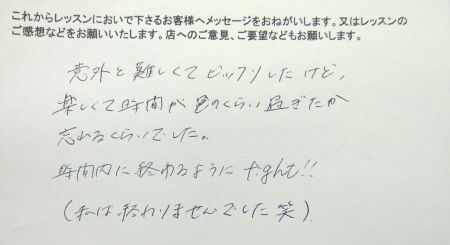 これからレッスンにおいで下さるお客様へメッセージをおねがいします。又はレッスンの
ご感想などをお願いいたします。店へのご意見、ご要望などもお願いします。
意外と難しくてビックリしたけど、
楽しくて時間がどのくらい過ぎたか
忘れるくらいでした。
時間内に終わるように fight!!
(私は終わりませんでした 笑)